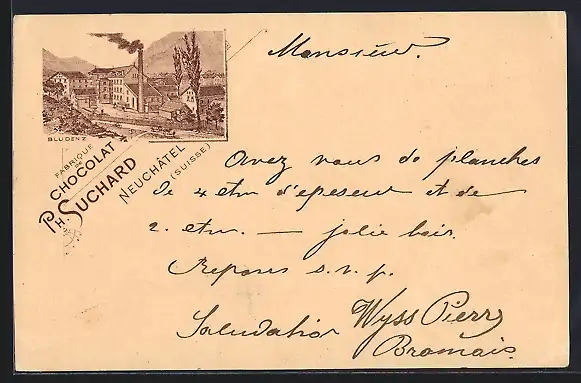 BLUDENZ
FABRIQUE DE
CHOCOLAT
PH. SUCHARD
NEUCHÂTEL
(SUISSE)
Monsieur.
Avez vous de planches
de 4 ctm d'epeseur et de
2. ctm. — jolie bois.
Reponse s.v.p.
Saludation Wyss Pierre